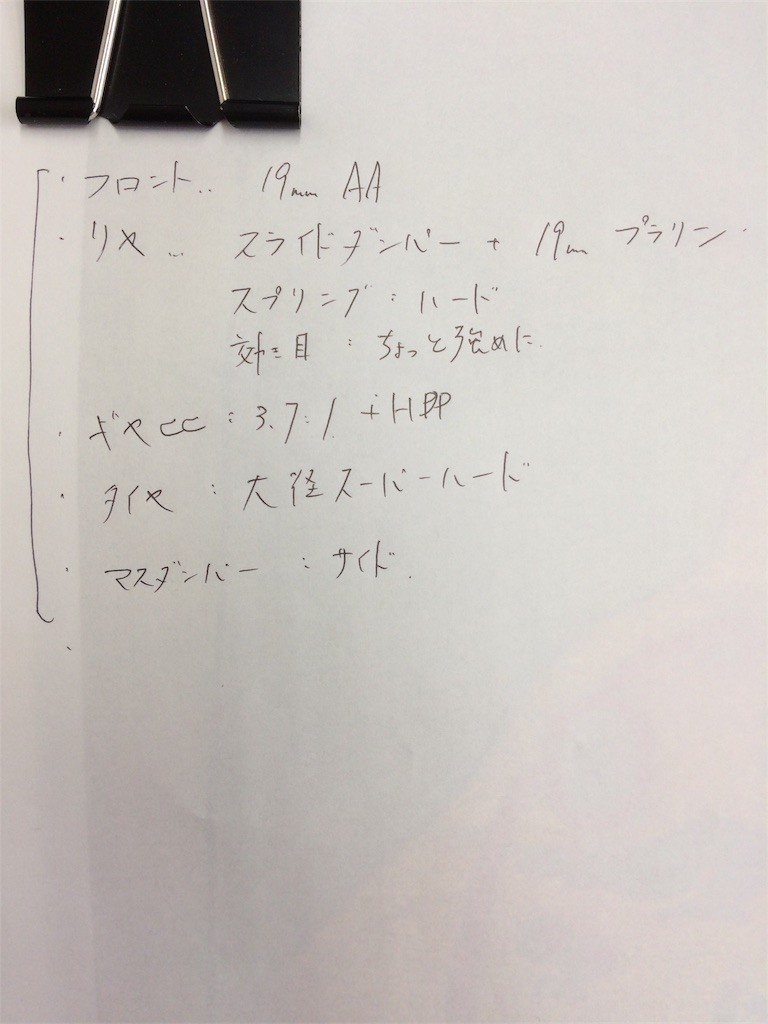 ・フロント‥ 19mm AA
・リヤ… スライドダンパー + 19mm プラリン.
スプリング:ハード
効き目:ちょっと強めに.
・ギヤ比:3.7:1 +HDP
・タイヤ:大径スーパーハード
・マスダンパー:サイド.
・